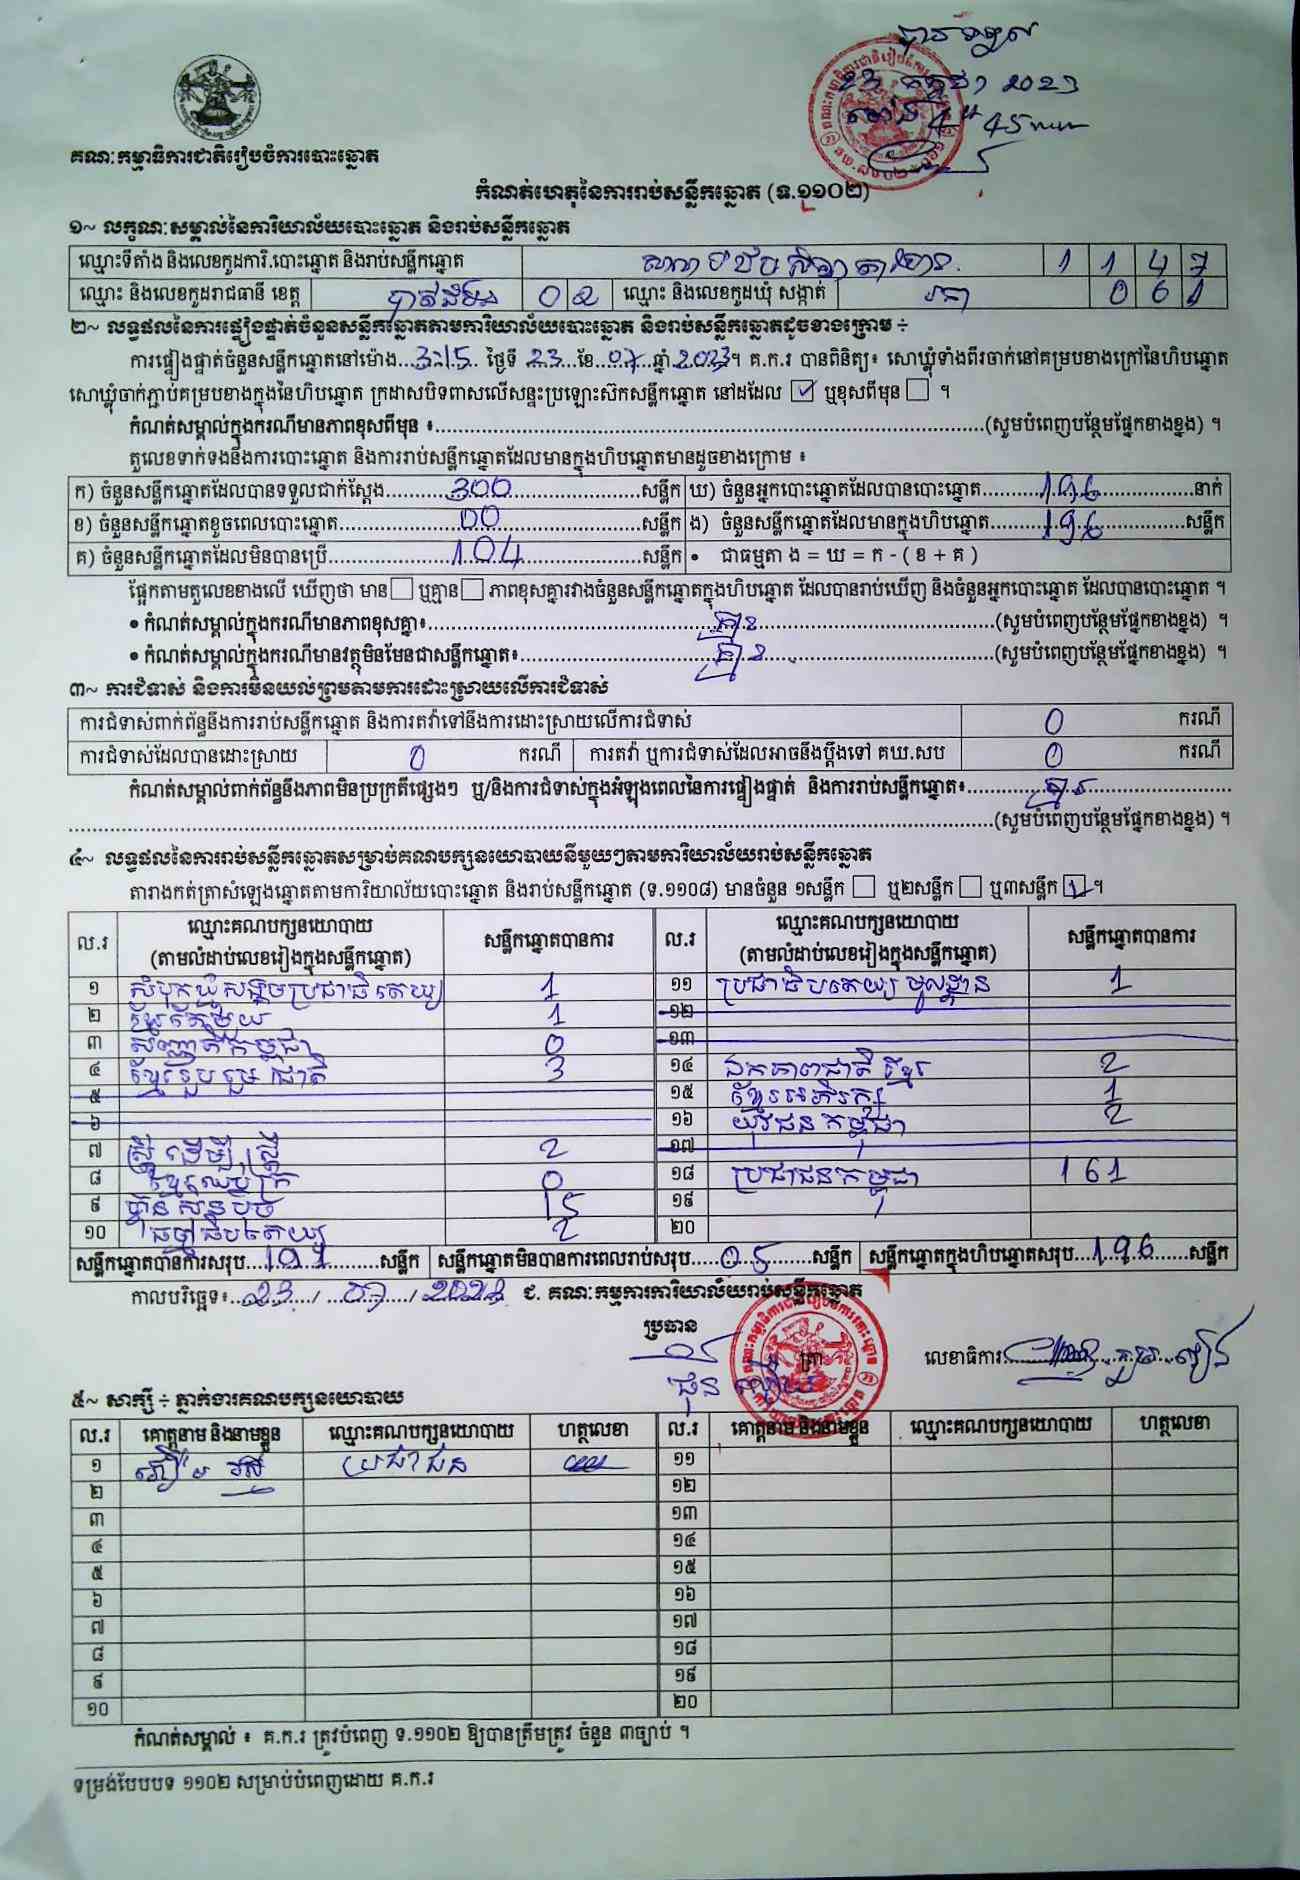 បានទទួល
23 កក្កដា 2023
ម៉ោង 4 45
គណៈកម្មាធិការជាតិរៀបចំការបោះឆ្នោត
កំណត់ហេតុនៃការរាប់សន្លឹកឆ្នោត (ទ.១១០២)
១~ លក្ខណៈសម្គាល់នៃការិយាល័យបោះឆ្នោត និងរាប់សន្លឹកឆ្នោត
ឈ្មោះទីតាំង និងលេខកូដការិ.បោះឆ្នោត និងរាប់សន្លឹកឆ្នោត 1 1 4 7
ឈ្មោះ និងលេខកូដរាជធានី ខេត្ត បាត់ដំបង 0 2 ឈ្មោះ និងលេខកូដឃុំ សង្កាត់ 0 6
២~ លទ្ធផលនៃការផ្ទៀងផ្ទាត់ចំនួនសន្លឹកឆ្នោតតាមការិយាល័យបោះឆ្នោត និងរាប់សន្លឹកឆ្នោតដូចខាងក្រោម ÷
ការផ្ទៀងផ្ទាត់ចំនួនសន្លឹកឆ្នោតនៅម៉ោង...3:15 ថ្ងៃទី 23...ខែ...07...ឆ្នាំ 2023។ គ.ក.រ បានពិនិត្យ៖ សោឃ្លុំទាំងពីរចាក់នៅគម្របខាងក្រៅនៃហិបឆ្នោត
សោឃ្លុំចាក់ភ្ជាប់គម្របខាងក្នុងនៃហិបឆ្នោត ក្រដាសបិទពាសលើសន្ទះប្រឡោះស៊កសន្លឹកឆ្នោត នៅដដែល ☑ ឬខុសពីមុន ☐ ។
កំណត់សម្គាល់ក្នុងករណីមានភាពខុសពីមុន ៖...(សូមបំពេញបន្ថែមផ្នែកខាងខ្នង) ។
តួលេខទាក់ទងនឹងការបោះឆ្នោត និងការរាប់សន្លឹកឆ្នោតដែលមានក្នុងហិបឆ្នោតមានដូចខាងក្រោម ៖
ក) ចំនួនសន្លឹកឆ្នោតដែលបានទទួលជាក់ស្តែង...300...សន្លឹក ឃ) ចំនួនអ្នកបោះឆ្នោតដែលបានបោះឆ្នោត...196...នាក់
ខ) ចំនួនសន្លឹកឆ្នោតខូចពេលបោះឆ្នោត...00...សន្លឹក ង) ចំនួនសន្លឹកឆ្នោតដែលមានក្នុងហិបឆ្នោត...196...សន្លឹក
គ) ចំនួនសន្លឹកឆ្នោតដែលមិនបានប្រើ...104...សន្លឹក • ជាធម្មតា ង = ឃ = ក - ( ខ + គ )
ផ្អែកតាមតួលេខខាងលើ ឃើញថា មាន ☐ ឬគ្មាន ☐ ភាពខុសគ្នារវាងចំនួនសន្លឹកឆ្នោតក្នុងហិបឆ្នោត ដែលបានរាប់ឃើញ និងចំនួនអ្នកបោះឆ្នោត ដែលបានបោះឆ្នោត ។
• កំណត់សម្គាល់ក្នុងករណីមានភាពខុសគ្នា៖...គ្មាន...(សូមបំពេញបន្ថែមផ្នែកខាងខ្នង) ។
• កំណត់សម្គាល់ក្នុងករណីមានវត្ថុមិនមែនជាសន្លឹកឆ្នោត៖...គ្មាន...(សូមបំពេញបន្ថែមផ្នែកខាងខ្នង) ។
៣~ ការជំទាស់ និងការមិនយល់ព្រមតាមការដោះស្រាយលើការជំទាស់
ការជំទាស់ពាក់ព័ន្ធនឹងការរាប់សន្លឹកឆ្នោត និងការតវ៉ាទៅនឹងការដោះស្រាយលើការជំទាស់ 0 ករណី
ការជំទាស់ដែលបានដោះស្រាយ 0 ករណី ការតវ៉ា ឬការជំទាស់ដែលអាចនឹងប្តឹងទៅ គឃ.សប 0 ករណី
កំណត់សម្គាល់ពាក់ព័ន្ធនឹងភាពមិនប្រក្រតីផ្សេងៗ ឬ/និងការជំទាស់ក្នុងអំឡុងពេលនៃការផ្ទៀងផ្ទាត់ និងការរាប់សន្លឹកឆ្នោត៖...គ្មាន...
...(សូមបំពេញបន្ថែមផ្នែកខាងខ្នង) ។
៤~ លទ្ធផលនៃការរាប់សន្លឹកឆ្នោតសម្រាប់គណបក្សនយោបាយនីមួយៗតាមការិយាល័យរាប់សន្លឹកឆ្នោត
តារាងកត់ត្រាសំឡេងឆ្នោតតាមការិយាល័យបោះឆ្នោត និងរាប់សន្លឹកឆ្នោត (ទ.១១០៨) មានចំនួន ១សន្លឹក ☐ ឬ២សន្លឹក ☐ ឬ៣សន្លឹក ☑ ។
ល.រ ឈ្មោះគណបក្សនយោបាយ (តាមលំដាប់លេខរៀងក្នុងសន្លឹកឆ្នោត) សន្លឹកឆ្នោតបានការ ល.រ ឈ្មោះគណបក្សនយោបាយ (តាមលំដាប់លេខរៀងក្នុងសន្លឹកឆ្នោត) សន្លឹកឆ្នោតបានការ
១ សំបុកឃ្មុំសង្គមប្រជាធិបតេយ្យ 1 ១១ ប្រជាធិបតេយ្យមូលដ្ឋាន 1
២ ខ្មែរតែមួយ 1 ១២
៣ សញ្ជាតិកម្ពុជា 0 ១៣
៤ ខ្មែររួបរួមជាតិ 3 ១៤ ឯកភាពជាតិខ្មែរ 2
៥ ១៥ ខ្មែរអភិរក្ស 1
៦ ១៦ យុវជនកម្ពុជា 2
៧ ស្ត្រីដើម្បីស្ត្រី 2 ១៧
៨ ខ្មែរឈប់ក្រ 0 ១៨ ប្រជាជនកម្ពុជា 161
៩ ហ៊្វុនស៊ិនប៉ិច 15 ១៩
១០ ធម្មាធិបតេយ្យ 2 ២០
សន្លឹកឆ្នោតបានការសរុប...191...សន្លឹក សន្លឹកឆ្នោតមិនបានការពេលរាប់សរុប...05...សន្លឹក សន្លឹកឆ្នោតក្នុងហិបឆ្នោតសរុប...196...សន្លឹក
កាលបរិច្ឆេទ៖...23.../...07.../...2023 ជ. គណៈកម្មការការិយាល័យរាប់សន្លឹកឆ្នោត
ប្រធាន ត្រា លេខាធិការ
៥~ សាក្សី ÷ ភ្នាក់ងារគណបក្សនយោបាយ
ល.រ គោត្តនាម និងនាមខ្លួន ឈ្មោះគណបក្សនយោបាយ ហត្ថលេខា ល.រ គោត្តនាម និងនាមខ្លួន ឈ្មោះគណបក្សនយោបាយ ហត្ថលេខា
១ ប្រជាជន ១១
២ ១២
៣ ១៣
៤ ១៤
៥ ១៥
៦ ១៦
៧ ១៧
៨ ១៨
៩ ១៩
១០ ២០
កំណត់សម្គាល់ ៖ គ.ក.រ ត្រូវបំពេញ ទ.១១០២ ឱ្យបានត្រឹមត្រូវ ចំនួន ៣ច្បាប់ ។
ទម្រង់បែបបទ ១១០២ សម្រាប់បំពេញដោយ គ.ក.រ